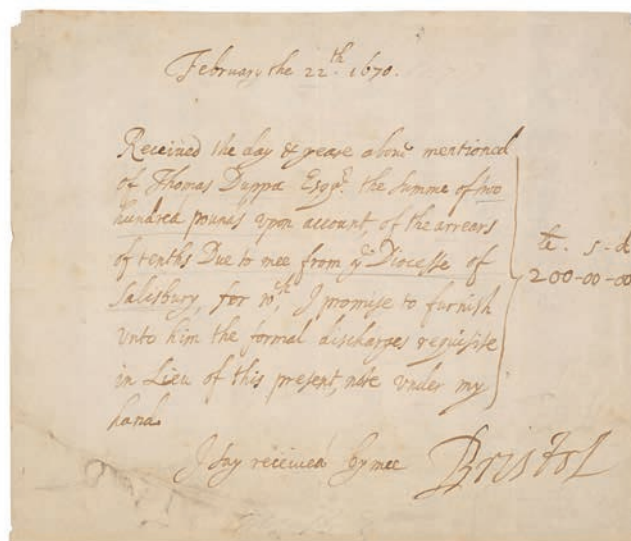 February the 22th. 1670.
Received the day & yeare above mentioned
of Thomas Duppa Esqr. the summe of two
hundred pounds vpon account, of the arrears
of tenths Due to mee from ye Diocesse of
Salisbury, for wch, I promise to furnish
vnto him the formal discharges requisite
in Lieu of this present, note vnder my
hand.
li. s. d
200-00-00
I say received by mee Bristol